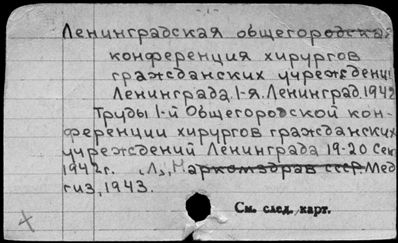 Ленинградская общегородская
конференция хирургов
гражданских учрежден
Ленинграда. 1-я. Ленинград. 1942
Труды 1-й Общегородской кон-
ференции хирургов гражданских
учреждений Ленинграда 19-20 Сен
1942г. Л., Наркомздрав ссср. Мед
гиз, 1943.
См. след. карт.